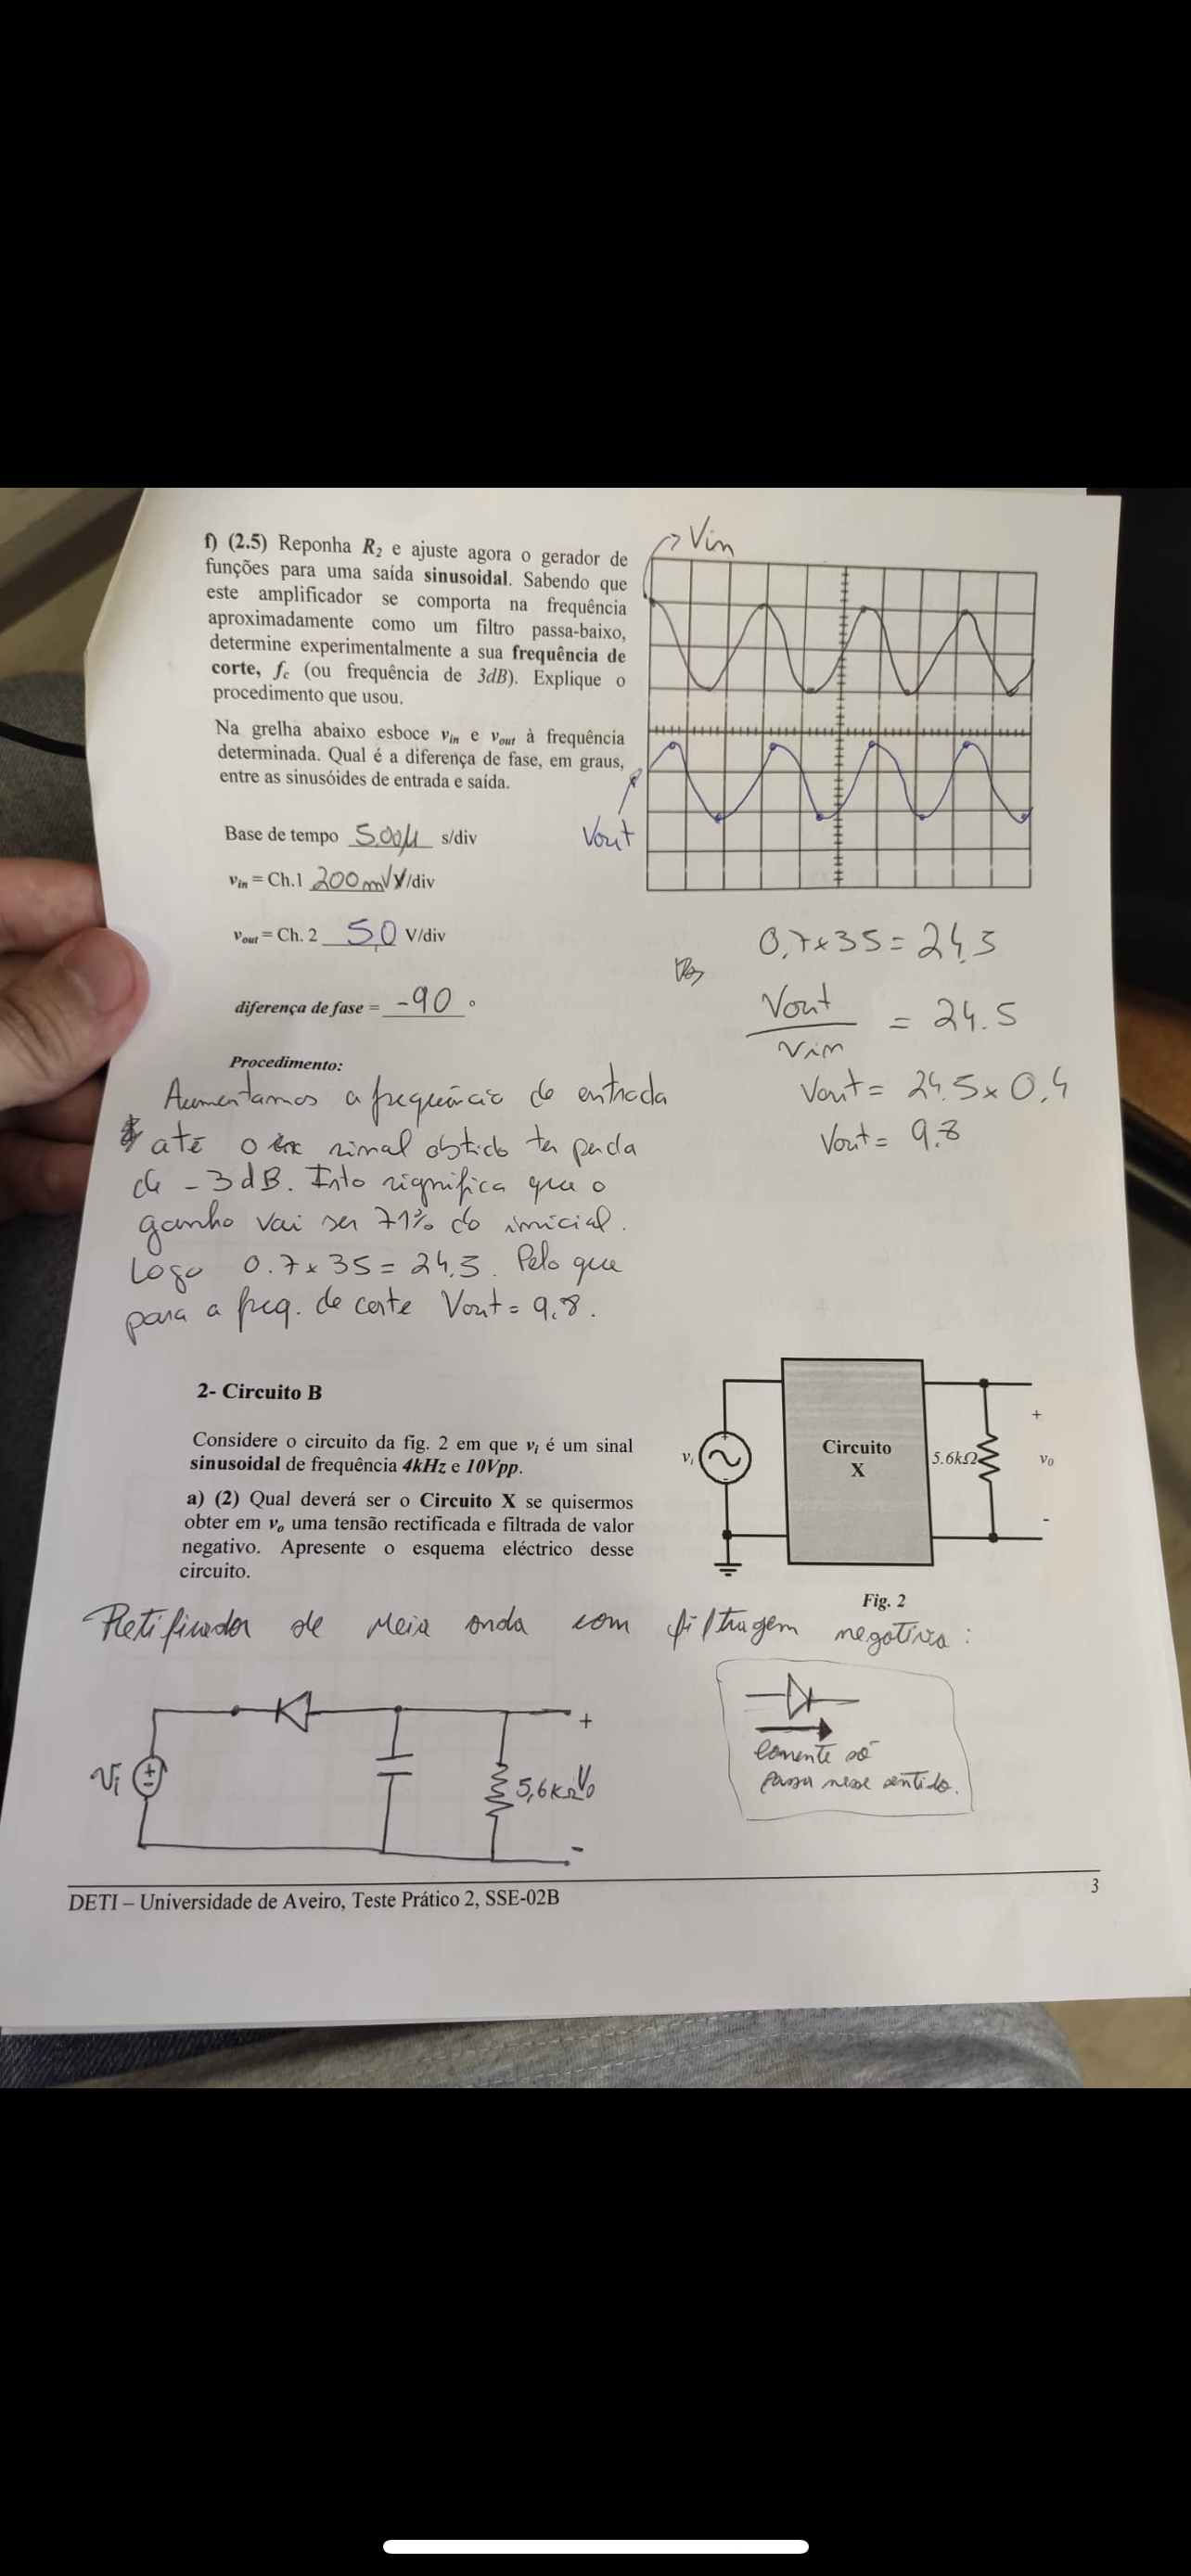 f) (2.5) Reponha R2 e ajuste agora o gerador de
funções para uma saída sinusoidal. Sabendo que
este amplificador se comporta na frequência
aproximadamente como um filtro passa-baixo,
determine experimentalmente a sua frequência de
corte, fc (ou frequência de 3dB). Explique o
procedimento que usou.
Na grelha abaixo esboce vin e vout à frequência
determinada. Qual é a diferença de fase, em graus,
entre as sinusóides de entrada e saída.
Vin
Vout
Base de tempo 500µ s/div
vin = Ch.1 200mV V/div
vout = Ch. 2 5,0 V/div
diferença de fase = -90 °
0,7x35 = 24,5
Vout / Vin = 24.5
Vout = 24.5 x 0,4
Vout = 9.8
Procedimento:
Aumentamos a frequência de entrada
até o sinal obtido ter perda
de -3dB. Isto significa que o
ganho vai ser 71% do inicial.
Logo 0.7x35 = 24,5. Pelo que
para a freq. de corte Vout = 9.8.
2- Circuito B
Considere o circuito da fig. 2 em que vi é um sinal
sinusoidal de frequência 4kHz e 10Vpp.
a) (2) Qual deverá ser o Circuito X se quisermos
obter em vo uma tensão rectificada e filtrada de valor
negativo. Apresente o esquema eléctrico desse
circuito.
vi
Circuito
X
5.6kΩ
+
v0
-
Fig. 2
Retificador de meia onda com filtragem negativa:
Vi
+
5,6kΩ
V0
-
Corrente só
passa nesse sentido.
DETI – Universidade de Aveiro, Teste Prático 2, SSE-02B
3